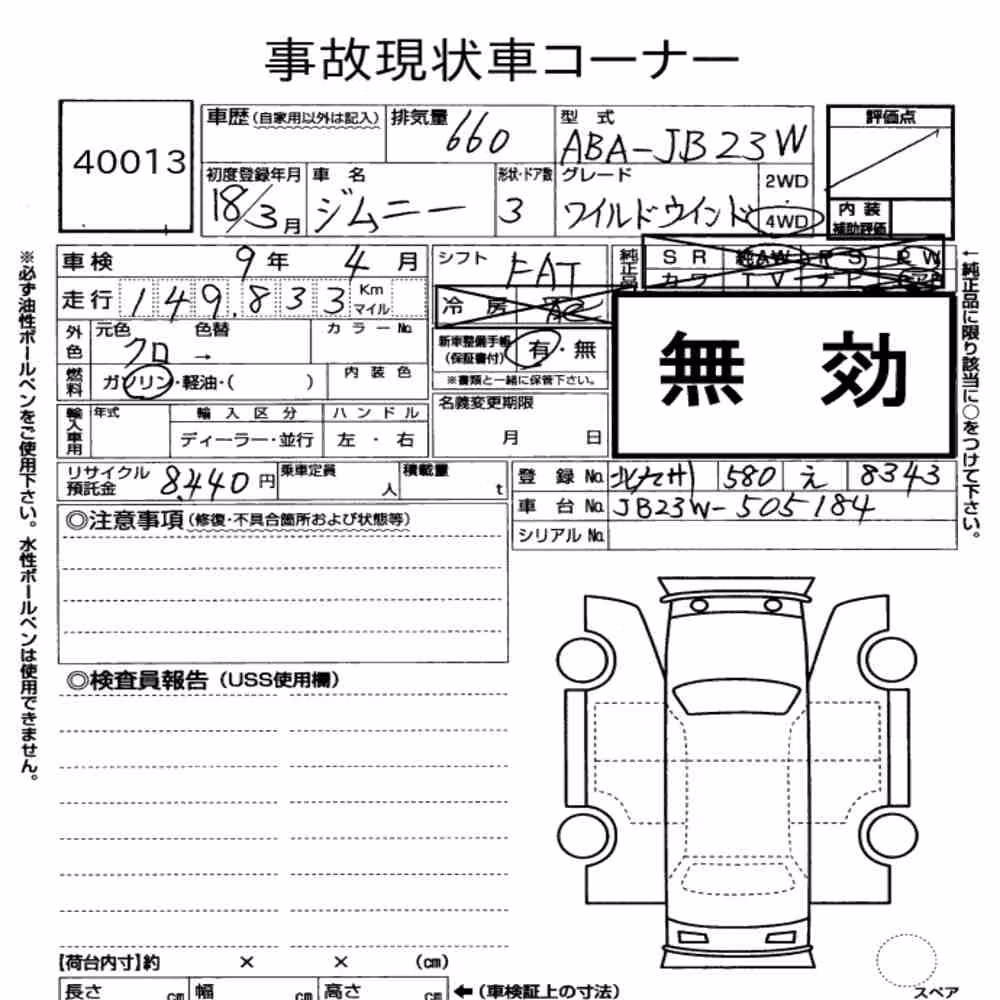 事故現状車コーナー
40013
車歴（自家用以外は記入） 排気量 660 型式 ABA-JB23W 評価点
初度登録年月 18/3月 車名 ジムニー 形状・ドア数 3 グレード ワイルドウインド 2WD 4WD
内装補助評価
車検 9年 4月 シフト FAT 純正品 SR 純AW PS PW
カワ TV ナビ
走行 149,833 Km マイル 冷房
外色 元色 クロ 色替 → カラーNo. 新車整備手帳（保証書付） 有・無
※書類と一緒に保管下さい。
無 効
燃料 ガソリン・軽油・( ) 内装色
名義変更期限 月 日
輸入車用 年式 輸入区分 ハンドル
ディーラー・並行 左・右
リサイクル預託金 8,440円 乗車定員 人 積載量 t
登録No. 北九州 580 え 8343
車台No. JB23W-505184
シリアルNo.
◎注意事項（修復・不具合箇所および状態等）
◎検査員報告（USS使用欄）
【荷台内寸】約 × × (cm)
長さ cm 幅 cm 高さ cm ←（車検証上の寸法）
スペア
※必ず油性ボールペンをご使用下さい。水性ボールペンは使用できません。
←純正品に限り該当に○をつけて下さい。